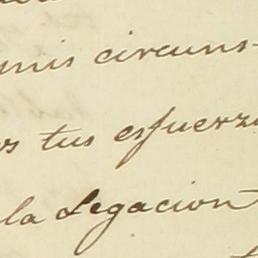 mis circuns-
os tus esfuerzo
la Legacion